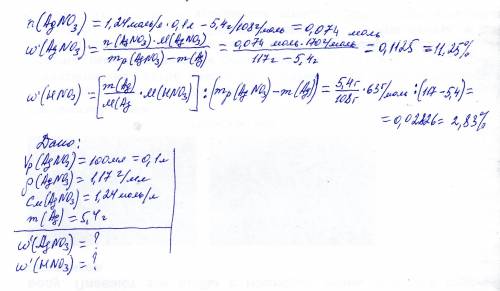 n(AgNO₃) = 1,24 моль/л · 0,1 л – 5,4 г/108 г/моль = 0,074 моль
ω'(AgNO₃) = n(AgNO₃)·M(AgNO₃) / mр(AgNO₃) – m(Ag) = 0,074 моль·170 г/моль / 117 г – 5,4 г = 0,1125 = 11,25%
ω'(HNO₃) = [m(Ag) / M(Ag · M(HNO₃)] : (mр(AgNO₃) – m(Ag)) = 5,4 г / 108 г · 63 г/моль : (117 – 5,4) =
= 0,02826 = 2,83%
Дано:
Vр(AgNO₃) = 100 мл = 0,1 л
ρ(AgNO₃) = 1,17 г/мл
Cм(AgNO₃) = 1,24 моль/л
m(Ag) = 5,4 г
ω'(AgNO₃) = ?
ω'(HNO₃) = ?